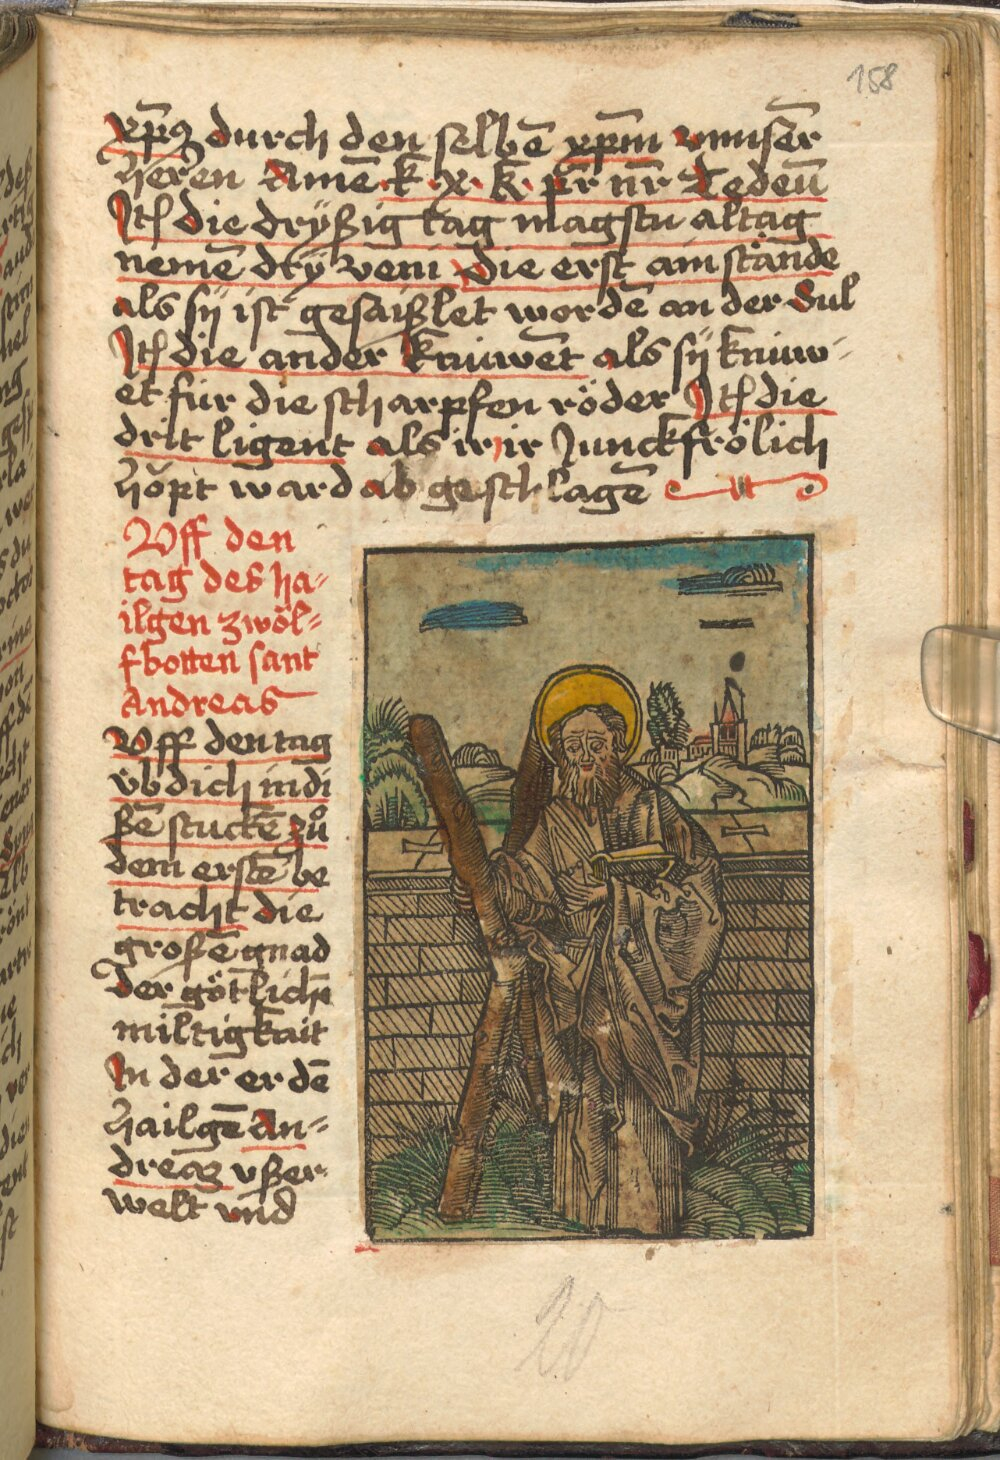 158
xp̄s durch den selbē xp̄m vnnsēr
Herēn Amē k̄ · x · k̄ · pr̄ nr̄ Tedeū
Itē die dryßig tag magstu altag
nemē dry veni die erst ain stānde
als sÿ ist gesaißlet wordē an der Sul
Itē die ander kniuwēt als sÿ kniuw-
et für die scharpfen röder Itē die
drit ligent als ir ir Junckfrölich
Hǒpt ward ab geschlagē
Vff den
tag des ha-
ilgen zwöl-
fbotten sant
Andreas
Vff den tag
üb dich in di
ßē stuckē zů
dem erstē be
tracht die
großē gnad
Der götlichē
miltigkait
In der er dē
Hailgē An-
dreas vßer
welt vnd
20